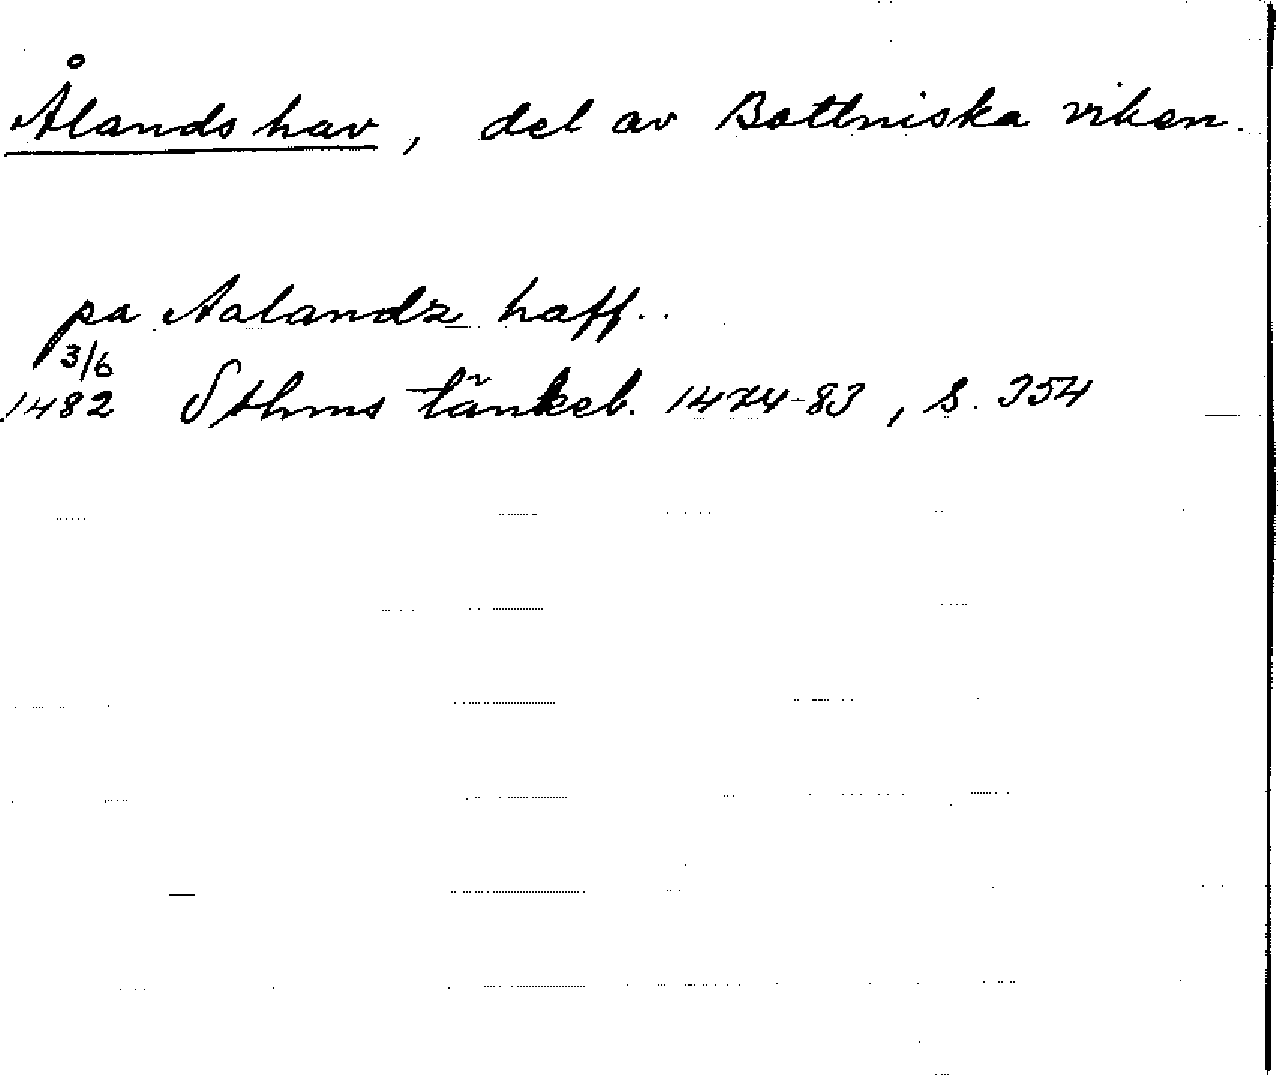 Ålands hav, del av Bottniska viken.
pa Aalandz haff..
3/6
1482 Sthms tänkeb. 1474-83, s. 354